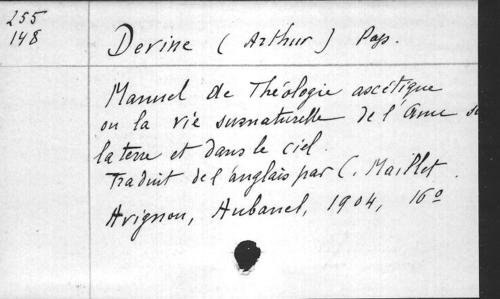 255
148
Devine (Arthur) Pass.
Manuel de Théologie ascétique
ou la vie surnaturelle de l'âme su
la terre et dans le ciel.
Traduit de l'anglais par C. Maillet.
Avignon, Aubanel, 1904, 16º